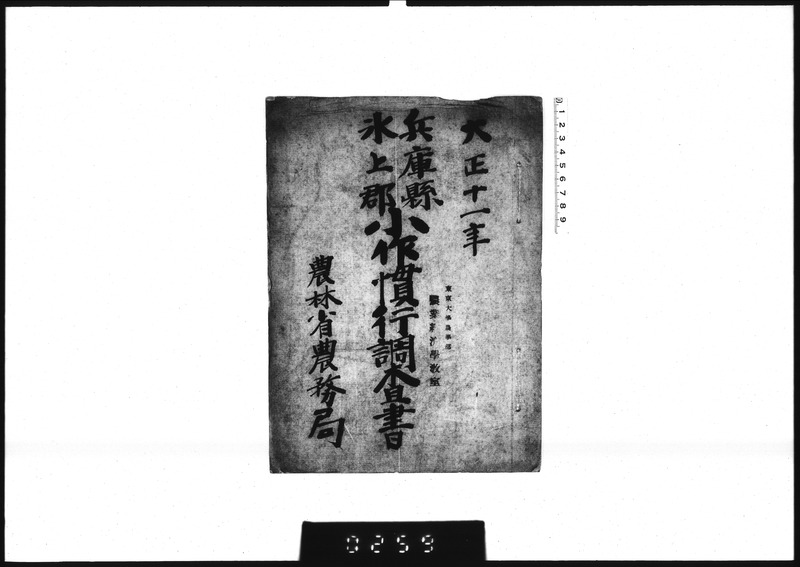 大正十一年
兵庫縣
氷上郡
小作慣行調査書
東京大學農學部
農業經濟學教室
農林省農務局
0 1 2 3 4 5 6 7 8 9
0259